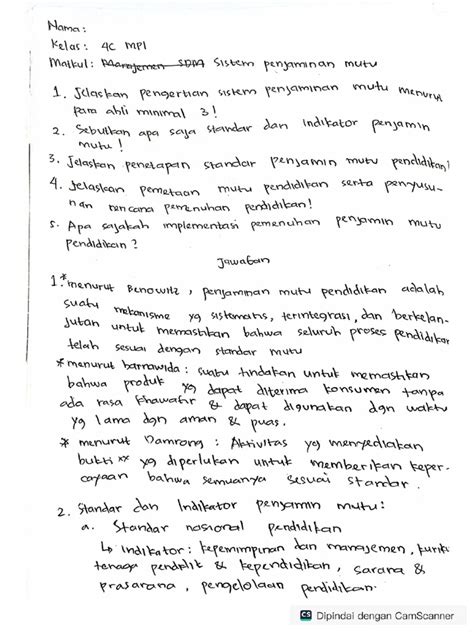 Nama :
Kelas : 4C MPI
Matkul : Manajemen SDM Sistem penjaminan mutu
1. Jelaskan pengertian sistem penjaminan mutu menurut
para ahli minimal 3!
2. Sebutkan apa saja standar dan Indikator penjamin
mutu!
3. Jelaskan penetapan standar penjamin mutu pendidikan!
4. Jelaskan pemetaan mutu pendidikan serta penyusu-
nan rencana pemenuhan pendidikan!
5. Apa sajakah implementasi pemenuhan penjamin mutu
pendidikan?
Jawaban
1.*menurut Benowitz, penjaminan mutu pendidikan adalah
suatu mekanisme yg sistematis, terintegrasi, dan berkelan-
jutan untuk memastikan bahwa seluruh proses pendidikan
telah sesuai dengan standar mutu
* menurut barnawida : suatu tindakan untuk memastikan
bahwa produk yg dapat diterima konsumen tanpa
ada rasa khawatir & dapat digunakan dgn waktu
yg lama dgn aman & puas.
* menurut Damrong : Aktivitas yg menyediakan
bukti xx yg diperlukan untuk memberikan keper-
cayaan bahwa semuanya sesuai standar.
2. Standar dan Indikator penjamin mutu :
a. Standar nasional pendidikan
↳ Indikator : kepemimpinan dan manajemen,
tenaga pendidik & kependidikan, sarana &
prasarana, pengelolaan pendidikan.
CS Dipindai dengan CamScanner